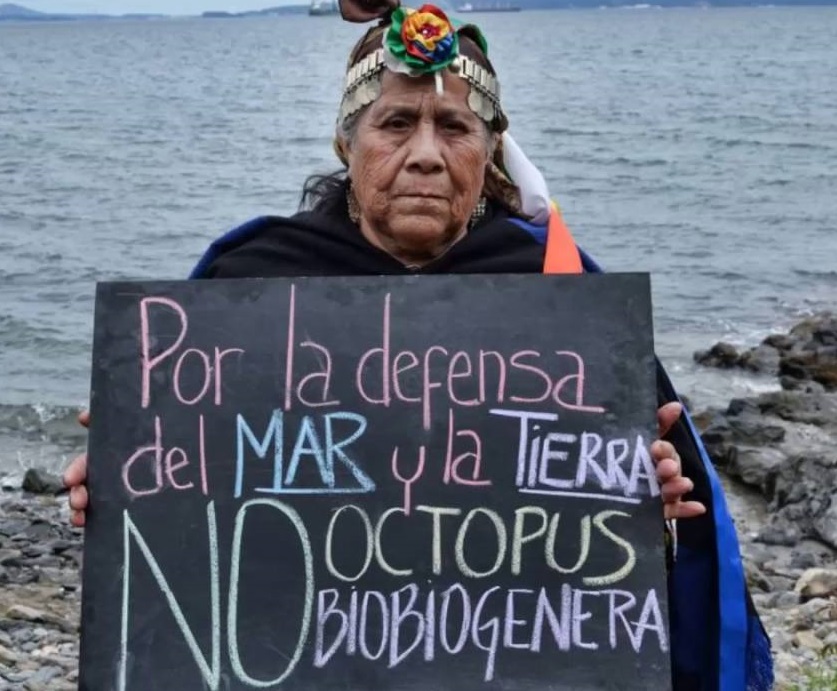 Por la defensa
del MAR y la TIERRA
NO OCTOPUS
BIOBIOGENERA